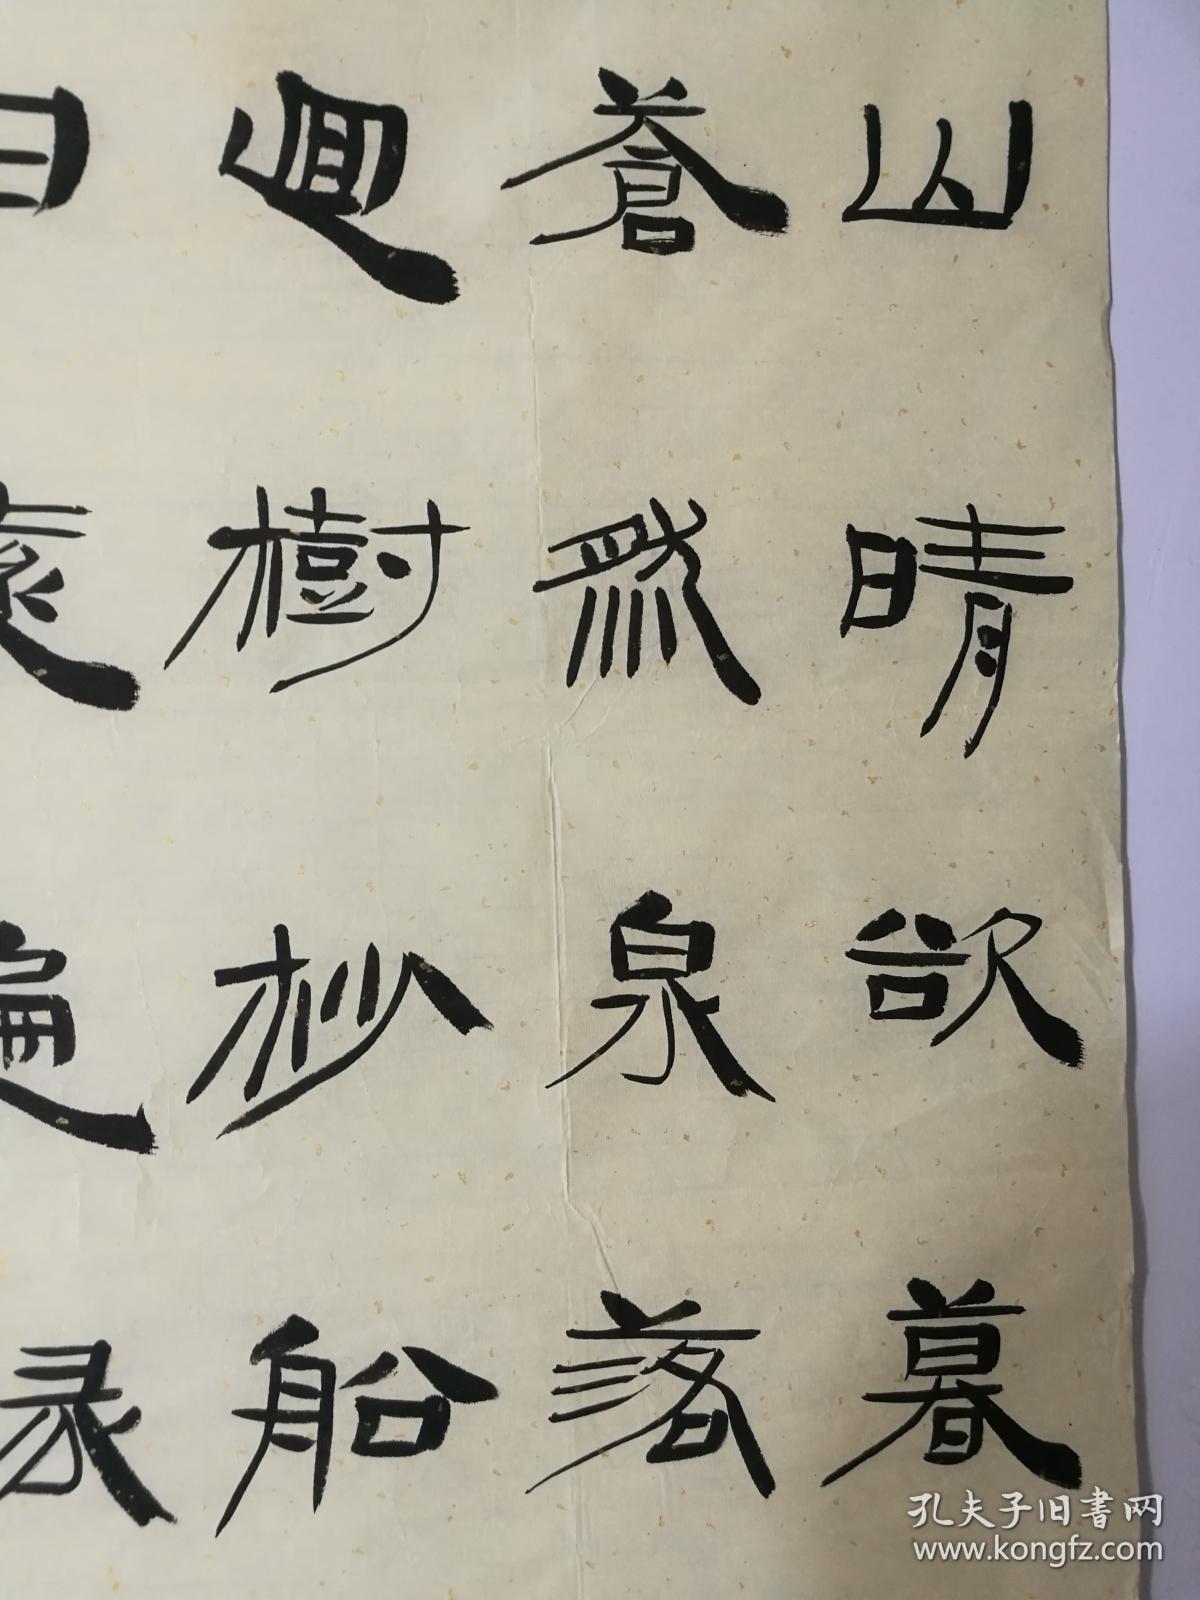 山晴欲暮
蒼然泉落
迴樹杪船
遠遍
孔夫子旧書网
www.kongfz.com